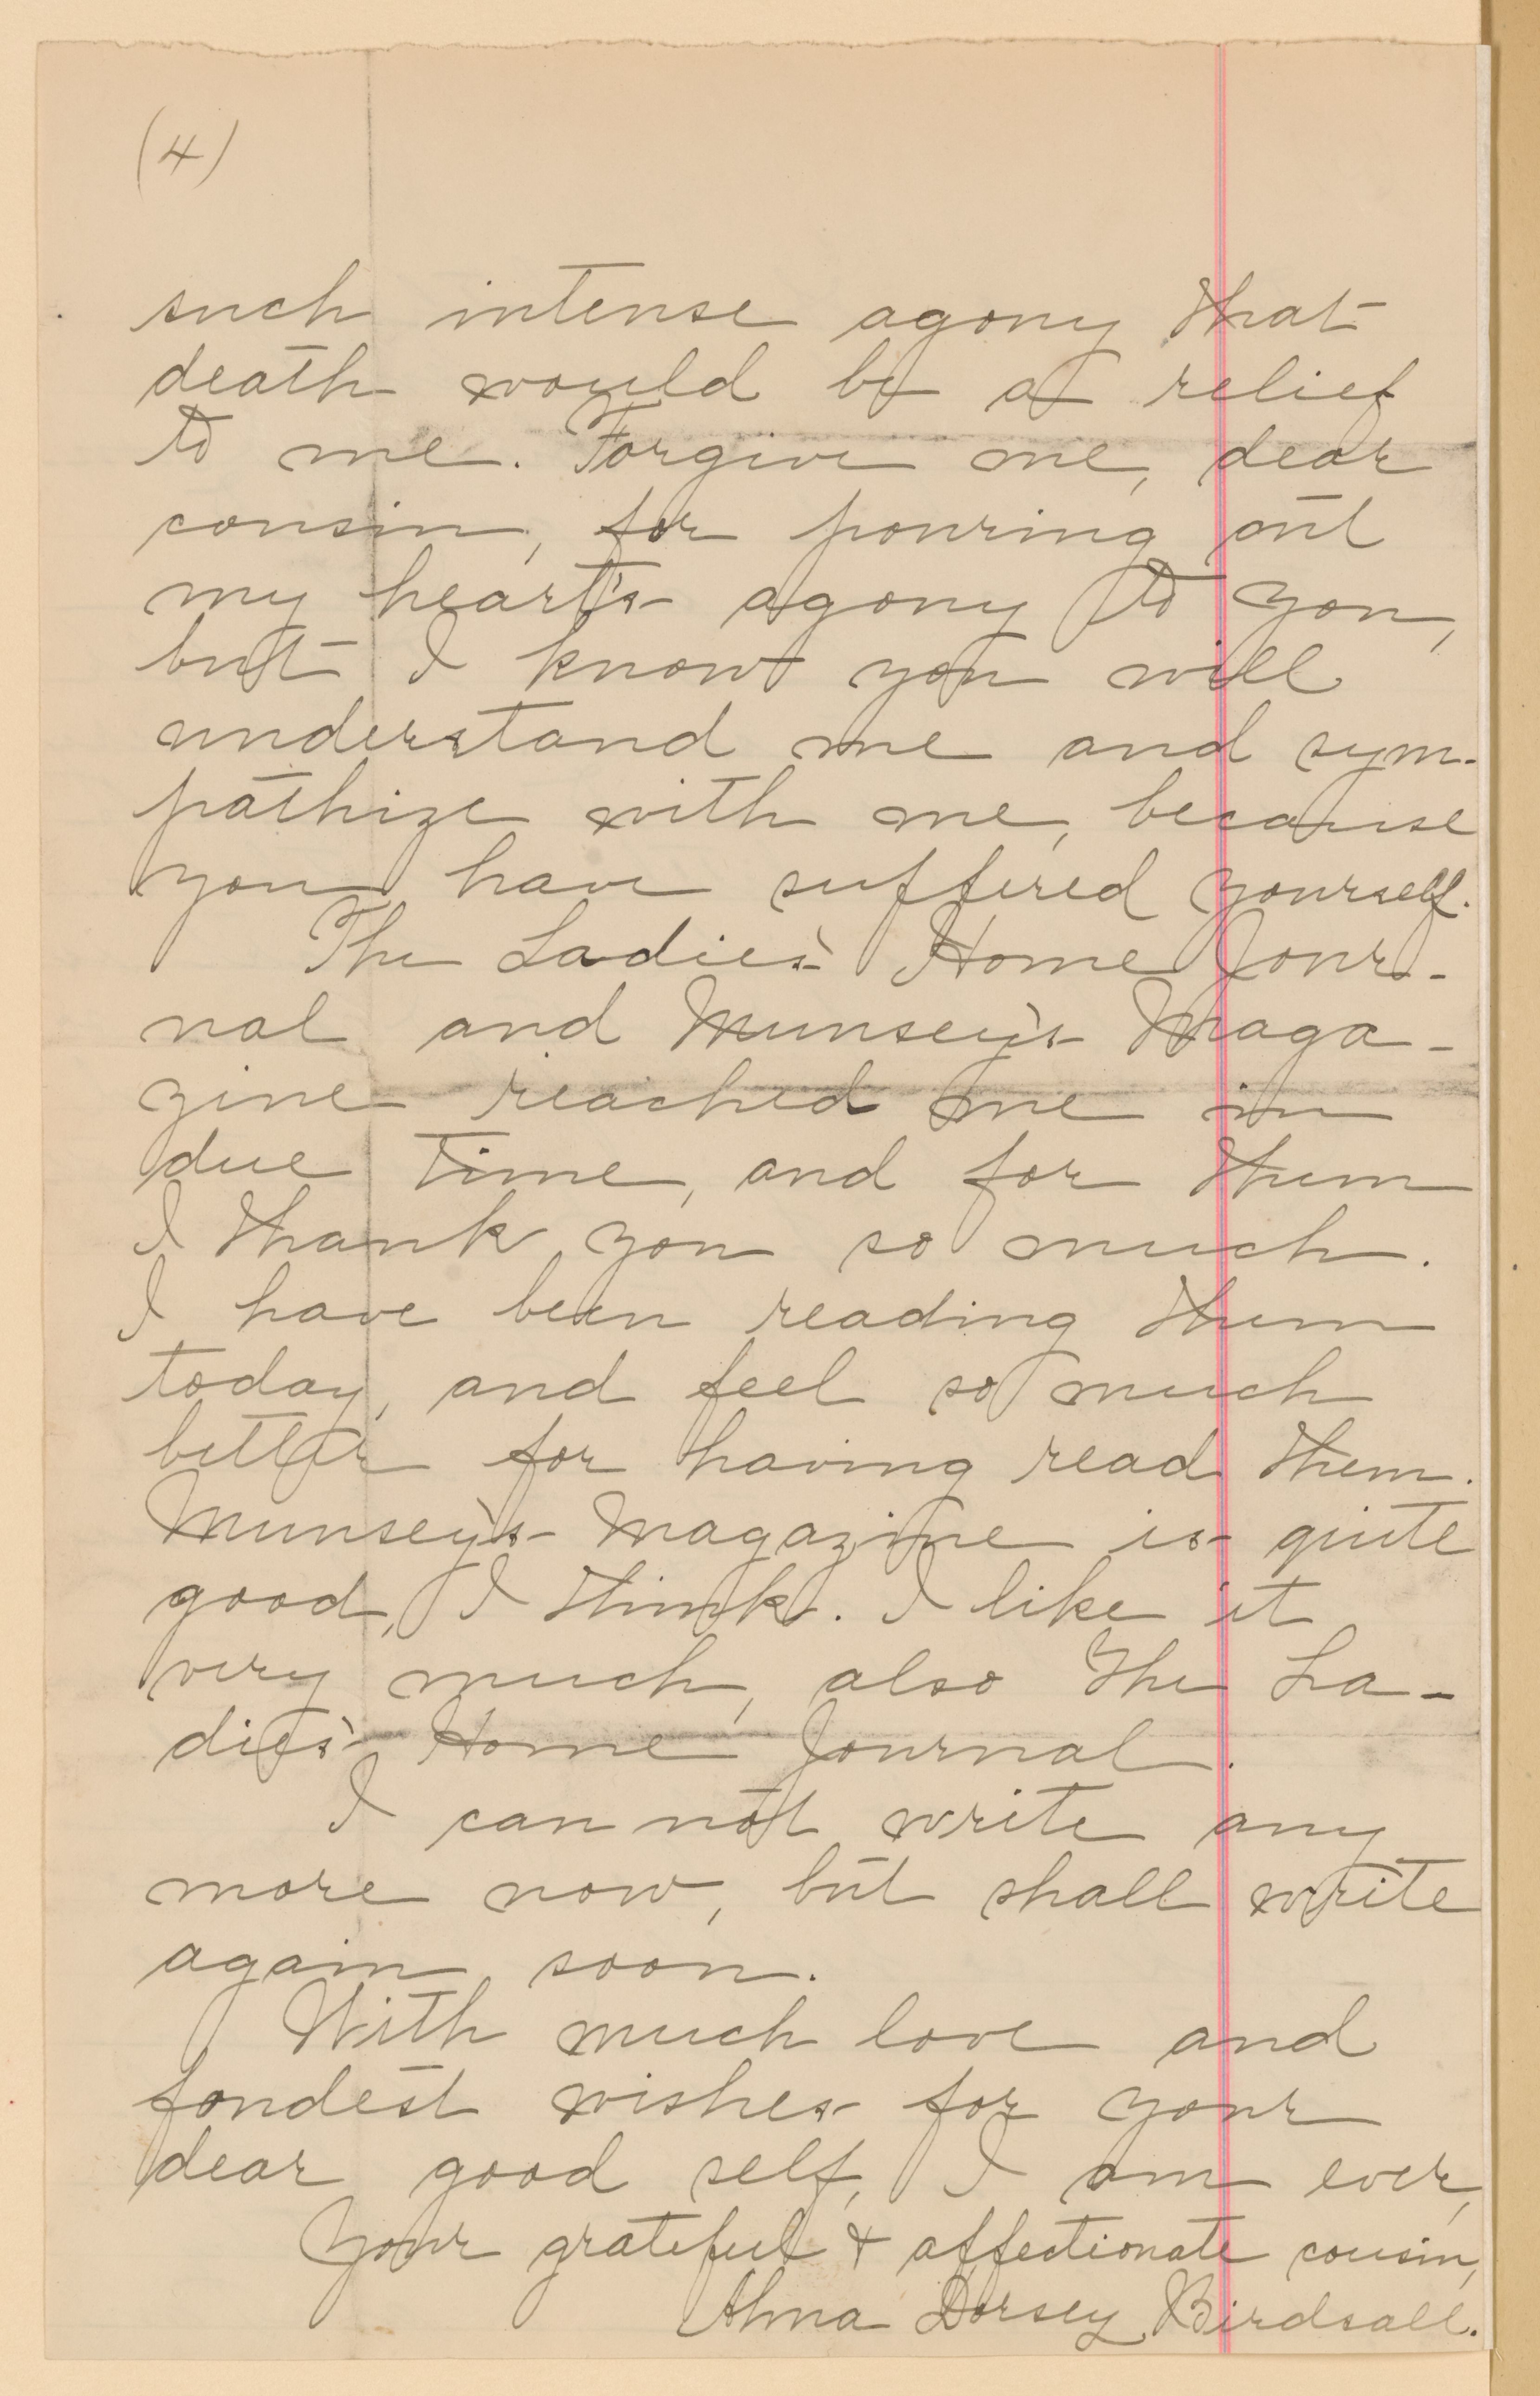 (4)
such intense agony that
death would be a relief
to me. Forgive me, dear
cousin, for pouring out
my heart's agony to you,
but I know you will
understand me and sym-
pathize with me, because
you have suffered yourself.
The Ladies' Home Jour-
nal and Munsey's Maga-
zine reached me in
due time, and for them
I thank you so much.
I have been reading them
today, and feel so much
better for having read them.
Munsey's Magazine is quite
good, I think. I like it
very much, also The La-
dies' Home Journal.
I can not write any
more now, but shall write
again soon.
With much love and
fondest wishes for your
dear good self, I am ever,
Your grateful & affectionate cousin,
Alma Dorsey Birdsall.